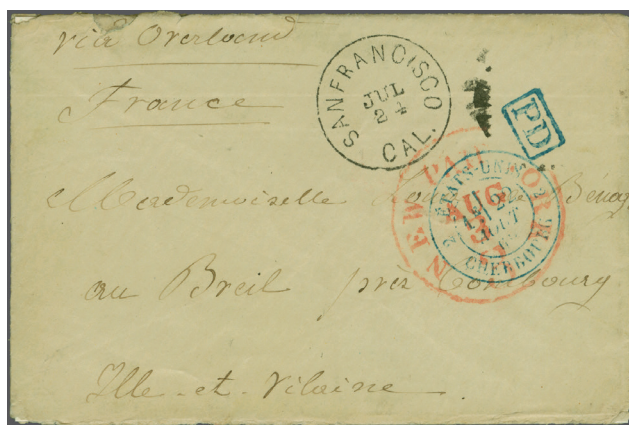 via Overland
France
SAN FRANCISCO
JUL
24
CAL.
PD
NEW PAID YORK
AUG
3
2 ETATS-UNIS
22
AOUT
CHERBOURG
Mademoiselle
au Breil près Combourg
Ille-et-Vilaine